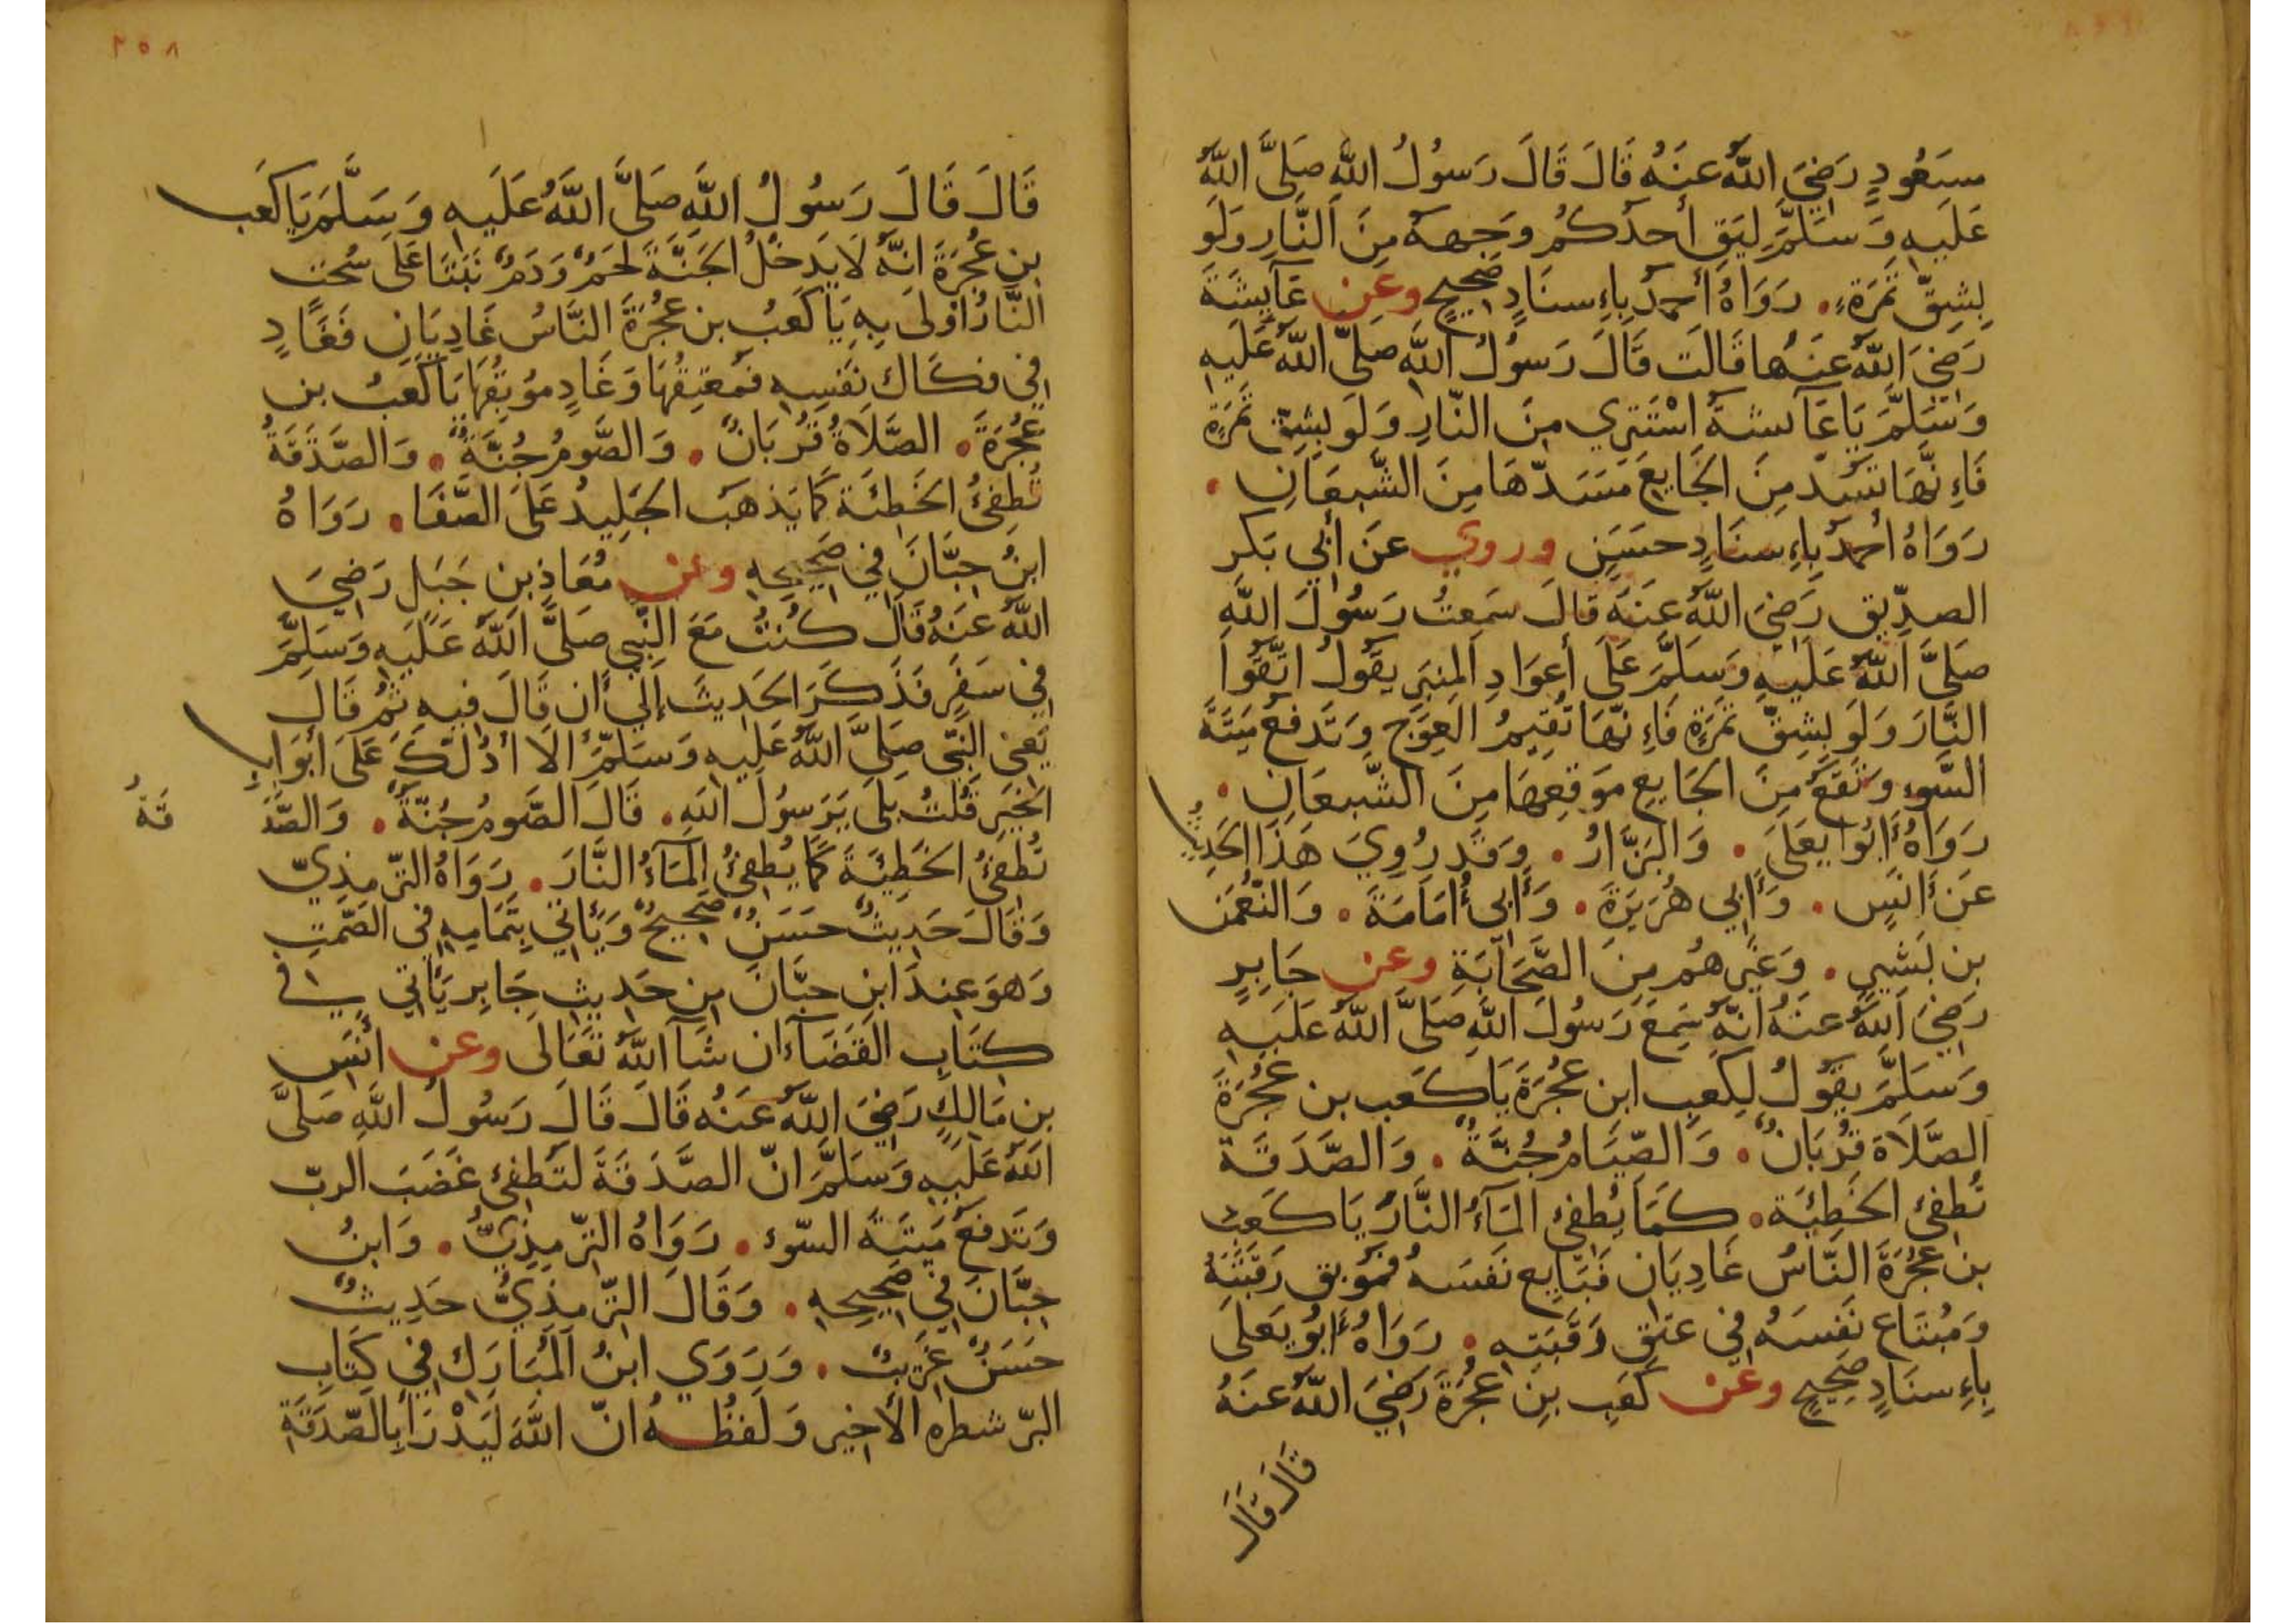 سَعُودٍ رَضِيَ اللَّهُ عَنْهُ قَالَ قَالَ رَسُولُ اللَّهِ صَلَّى اللَّهُ
عَلَيهِ وَسَلَّمَ لِيَقِ أَحَدُكُمْ وَجهَهُ مِنَ النَّارِ وَلَو
بِشِقِّ تَمْرَةٍ. رَوَاهُ أَحمَدُ بِاءِسنَادٍ صَحِيحٍ وعن عَآيِشَةَ
رَضِيَ اللَّهُ عَنْهَا قَالَت قَالَ رَسُولُ اللَّهِ صَلَّى اللَّهُ عَلَيهِ
وَسَلَّمَ يَا عَآئشَةُ اسْتَتِرِي مِنَ النَّارِ وَلَو بِشِقِّ تَمرَةٍ
فَاءِنَّهَا تَسُدّ مِنَ الجَايِعِ مَسَدّهَا مِنَ الشَّبعَانِ.
رَوَاهُ أَحمَدُ بِاءِسنَادٍ حسَنٍ وروي عَن أَبِي بَكر
الصدِّيق رَضِيَ اللَّهُ عَنهُ قَالَ سَمِعتُ رَسُولَ اللَّهِ
صَلَّى اللَّهُ عَلَيهِ وَسَلَّمَ عَلَى أَعوَادِ المِنبَرِ يقُولُ اتَّقُوا
النَّارَ وَلَو بِشِقِّ تَمرَةٍ فَاءِنَّهَا تُقِيمُ العِوَج وَتَدفَعُ مِيتَةَ
السُّوء وَتَقَعُ مِنَ الجَايِعِ مَوقِعهَا مِنَ الشَّبعَانِ.
رَوَاهُ أَبُوا يَعلَى. وَالبَزَّارُ. وَقَد رُوِيَ هَذَا الحَدِيثُ
عَن أَنَسٍ. وَأَبِي هُرَيرَةَ. وَأَبِي أُمَامَةَ. وَالنُّعمَن
بن بَشِيرٍ. وَغَيرِهُم مِنَ الصَّحَابَةِ وعن جَابِرٍ
رَضِيَ اللَّهُ عَنهُ انَّهُ سَمِعَ رَسُولَ اللَّهِ صَلَّى اللَّهُ عَلَيهِ
وَسَلَّمَ يقُولُ لِكَعبِ ابن عُجرَةَ يَا كَعب بن عُجرَةَ
الصَّلَاة قُربَانٌ. وَالصِّيَامُ جُنَّةٌ. وَالصَّدَقَة
تُطفِئ الخَطِيَّةَ. كَمَا يُطفِئ المَآءُ النَّارَ يَا كَعبُ
بن عُجرَةَ النَّاسُ غَادِيَان فَبَايِع نَفسَهُ فمُوبِق رَقَبَتَهُ
وَمُبتَاع نَفسَهُ فِي عِتقِ رَقَبَتِهِ. رَوَاهُ أَبُو يَعلَى
بِاءِسنَادٍ صَحِيحٍ وعن كَعبِ بنِ عُجرَةَ رَضِيَ اللَّهُ عَنهُ
قَالَ قَالَ
٢٥٨
قَالَ قَالَ رَسُولُ اللَّهِ صَلَّى اللَّهُ عَلَيهِ وَسَلَّمَ يَا كَعب
بن عُجرَةَ انَّهُ لَا يَدخُلُ الجَنَّةَ لَحمٌ وَدَمٌ نَبَتَا عَلَى سُحت
النَّارُ أَولَى بِهِ يَا كَعبُ بن عُجرَةَ النَّاسُ غَادِيَانِ فَغَادٍ
فِي فكَاك نَفسِهِ فمُعتِقُهَا وَغَادٍ مُوبِقُهَا يَا كَعبُ بن
عُجرَةَ. الصَّلَاةُ قُربَانٌ. وَالصَّومُ جُنَّةٌ. وَالصَّدَقَةُ
تُطفِئُ الخَطِئَةَ كَمَا يَذهَبُ الجَلِيدُ عَلَى الصَّفَا. رَوَاهُ
ابنُ حِبَّانَ فِي صَحِيحِهِ وعن مُعَاذِ بن جَبَلٍ رَضِيَ
اللَّهُ عَنهُ قَالَ كُنتُ مَعَ النَّبِي صَلَّى اللَّهُ عَلَيهِ وَسَلَّمَ
فِي سَفَرٍ فَذَكَرَ الحَدِيثَ إِلَي أَن قَالَ فِيهِ ثُمَّ قَالَ
يَعنِي النَّبِيّ صَلَّى اللَّهُ عَلَيهِ وَسَلَّمَ أَلَا أَدُلّكَ عَلَى أَبوَابِ
الخَيرِ قُلتُ بلَى يَرَسُولَ اللَّهِ. قَالَ الصَّومُ جُنَّةٌ. وَالصَّدَ
قَةُ
تُطفِئُ الخَطِيَّةَ كَمَا يُطفِئُ المَآءُ النَّارَ. رَوَاهُ التِّرمِذِيّ
وَقَالَ حَدِيثٌ حسَنٌ صَحِيحٌ وَيَأتِي بِتَمَامِهِ فِي الصَّمتِ
وَهوَ عِندَ ابنِ حبَّانَ مِن حَدِيثِ جَابِر يَأتِي فِي
كِتَابِ القَضَآء ان شَآ اللَّهُ تَعَالَى وعن أَنَس
بن مَالِكٍ رَضِيَ اللَّهُ عَنهُ قَالَ قَالَ رَسُولُ اللَّهِ صَلَّى
اللَّهُ عَلَيهِ وَسَلَّمَ انّ الصَّدَقَةَ لَتُطفِئ غَضَبَ الربّ
وَتَدفَعُ مِيتَةَ السّوء. رَوَاهُ التِّرمِذِيُّ. وَابنُ
حِبَّانَ فِي صَحِيحِهِ. وَقَالَ التِّرمِذِيُّ حَدِيثٌ
حَسَنٌ غَرِيبٌ. وَرَوَي ابنُ المُبَارَك فِي كِتَابِ
البرّ شطره الأَخِير وَلَفظُهُ انّ اللَّهَ لَيَدْرَأُ بِالصَّدَقَةِ